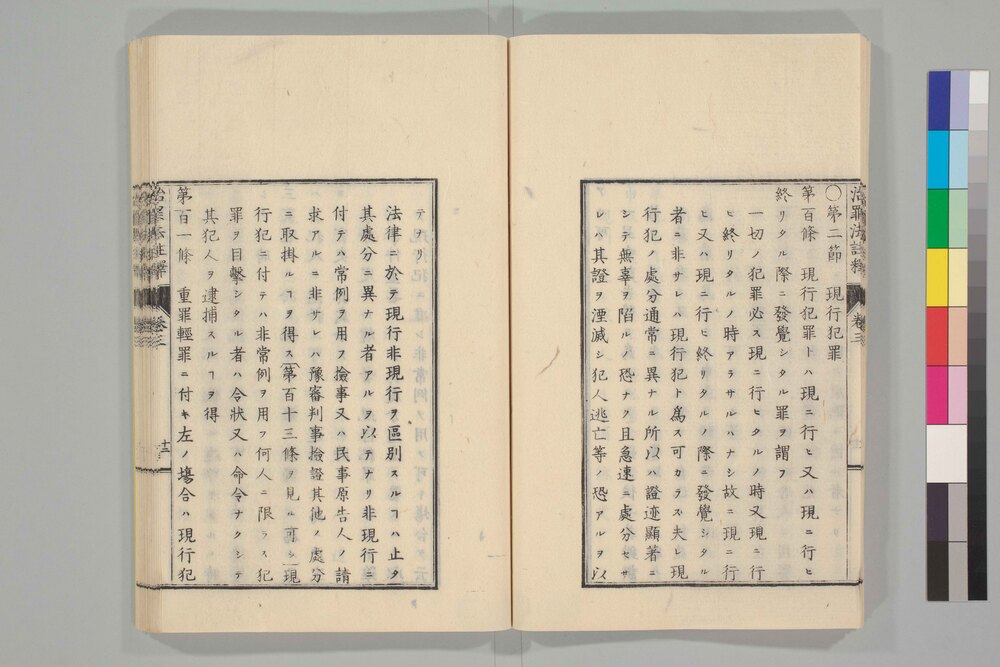 治罪法註釋 卷三
〇第二節 現行犯罪
第百條 現行犯罪トハ現ニ行ヒ又ハ現ニ行ヒ
終リタル際ニ發覺シタル罪ヲ謂フ
一切ノ犯罪必ス現ニ行ヒタルノ時又現ニ行
ヒ終リタルノ時アラサルハナシ故ニ現ニ行
ヒ又ハ現ニ行ヒ終リタルノ際ニ發覺シタル
者ニ非サレハ現行犯ト爲ス可カラス夫レ現
行犯ノ處分通常ニ異ナル所以ハ證迹顯著ニ
シテ無辜ヲ陷ルノ恐ナク且急速ニ處分セサ
レハ其證ヲ湮滅シ犯人逃亡等ノ恐アルヲ以
テヲリ
法律ニ於テ現行非現行ヲ區別スルヿハ止タ
其處分ニ異ナル者アルヲ以テナリ非現行ニ
付テハ常例ヲ用フ撿事又ハ民事原告人ノ請
求アルニ非サレハ豫審判事撿證其他ノ處分
ニ取掛ルヿヲ得ス(第百十三條ヲ見ル可シ)現
行犯ニ付テハ非常例ヲ用フ何人ニ限ラス犯
罪ヲ目擊シタル者ハ令狀又ハ命令ナクシテ
其犯人ヲ逮捕スルヿヲ得
第百一條 重罪輕罪ニ付キ左ノ塲合ハ現行犯
治罪法註釋 卷三
十二